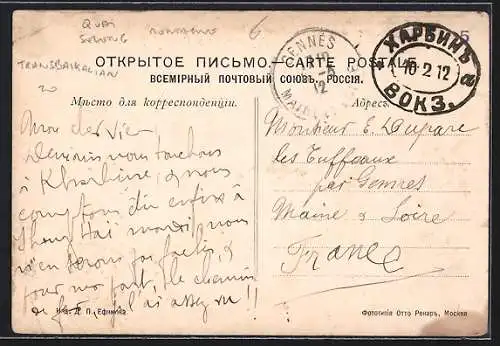 QUAI
6
5
TRANSBAIKALIAN
20
GENNES
12
MAINE
ХАРБИНЪ
10 2 12
а
ВОКЗ.
ОТКРЫТОЕ ПИСЬМО.—CARTE POSTALE.
ВСЕМІРНЫЙ ПОЧТОВЫЙ СОЮЗЪ, РОССІЯ.
Мѣсто для корреспонденціи.
Адресъ.
Mon cher Vieux
Demain nous touchons
à Kharbine, & nous
comptons du enfin à
Shang Haï mardi, nous
n'en serons pas fachés, &
pour ma part, le chemin
de fer j'ai assez vu!!
Monsieur E. Dupare
les Tuffeaux
par Gennes
Maine & Loire
France
Изд. Д. П. Ефимова
Фототипія Отто Ренаръ, Москва